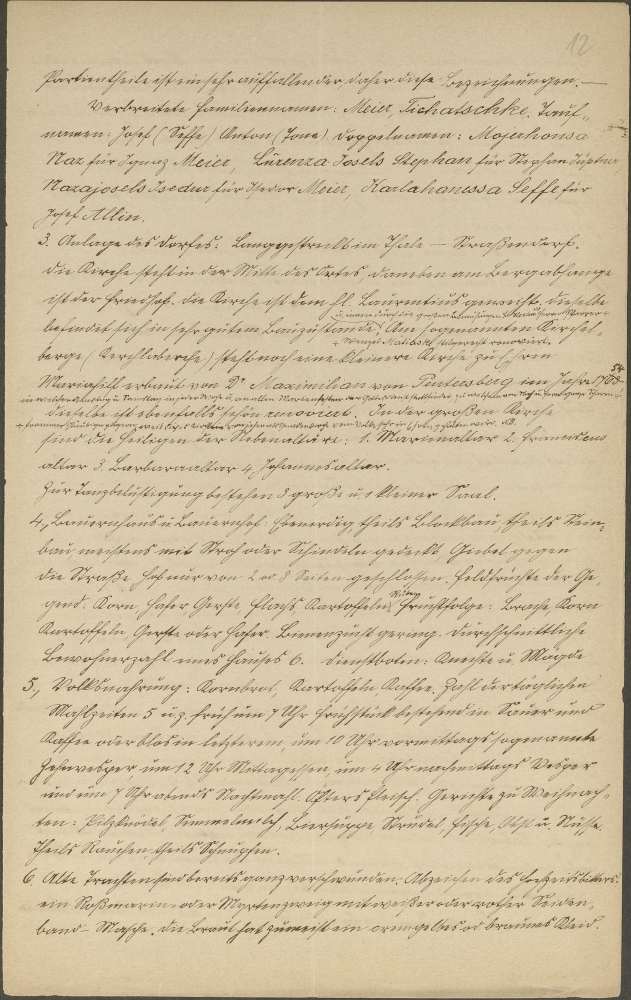 12
Partientheile ist ein sehr auffallender, daher diese Bezeichnungen. —
Verbreitete Familiennamen: Meier, Tichatschke. Tauf-
namen: Josef (Seffe) Anton (Tone) Doppelnamen: Mojerhonsa
Naz für Ignaz Meier, Lurenza Josels Stephan für Stephan
Nazajosels Isedur für Isedor Meier, Karlahanessa Seffe für
Josef Allin.
3. Anlage des Dorfes: Langgestreckt im Thale — Straßendorf.
Die Kirche steht in der Mitte des Ortes daneben am Bergabhange
ist der Friedhof. Die Kirche ist dem hl. Laurentius geweiht. Dieselbe
befindet sich in sehr gutem Bauzustande. Am sogenannten Kirchel-
berge (Kerchlaberche) steht noch eine kleinere Kirche zu Ehren
Mariahilf erbaut von Dr Maximilian von im Jahre
dieselbe ist ebenfalls schön renoviert. In der großen Kirche
sind die Heiligen der Nebenaltäre: 1. Marienaltar 2. Franciscus
altar 3. Barbaraaltar 4, Johannesaltar.
Zur Tanzbelustigung bestehen 3 große u. 1 kleiner Saal.
4, Bauernhaus u. Bauernhof: Ebenerdig, theils Blockbau, theils Stein-
bau meistens mit Stroh oder Schindeln gedeckt, Giebel gegen
die Straße Hof nur von 2 od. 3 Seiten geschlossen. Feldfrüchte der Ge-
gend: Korn, Hafer, Gerste, Flachs Kartoffeln Fruchtfolge: Brache, Korn
Kartoffeln, Gerste oder Hafer. Bienenzucht gering. Durchschnittliche
Bewohnerzahl eines Hauses 6. Dienstboten: Knechte u. Mägde
5., Volksnahrung: Kornbrot, Kartoffeln Kaffee. Zahl der täglichen
Mahlzeiten 5 u. z. früh um 7 Uhr Frühstück bestehend in Sauer und
Kaffee oder blos in letzterem, um 10 Uhr vormittags sogenannte
Zehnvesper, um 12 Uhr Mittagessen, um 4 Uhr nachmittags Vesper
und um 7 Uhr abends Nachtmahl. Öfters Fleisch. Gerichte zu Weihnach-
ten: Pilzknödel, Semmelmilch, Biersuppe Strudel, Fische, Obst u. Nüsse
Theils Rauchen theils Schnupfen.
6. Alte Trachten sind bereits ganz verschwunden. Abzeichen des Hochzeitsbitters:
ein Rosmarin- oder Myrtenzweig mit weißer oder rother Seiden-
band-Masche. Die Braut hat zumeist ein orangelbes od. braunes Kleid.